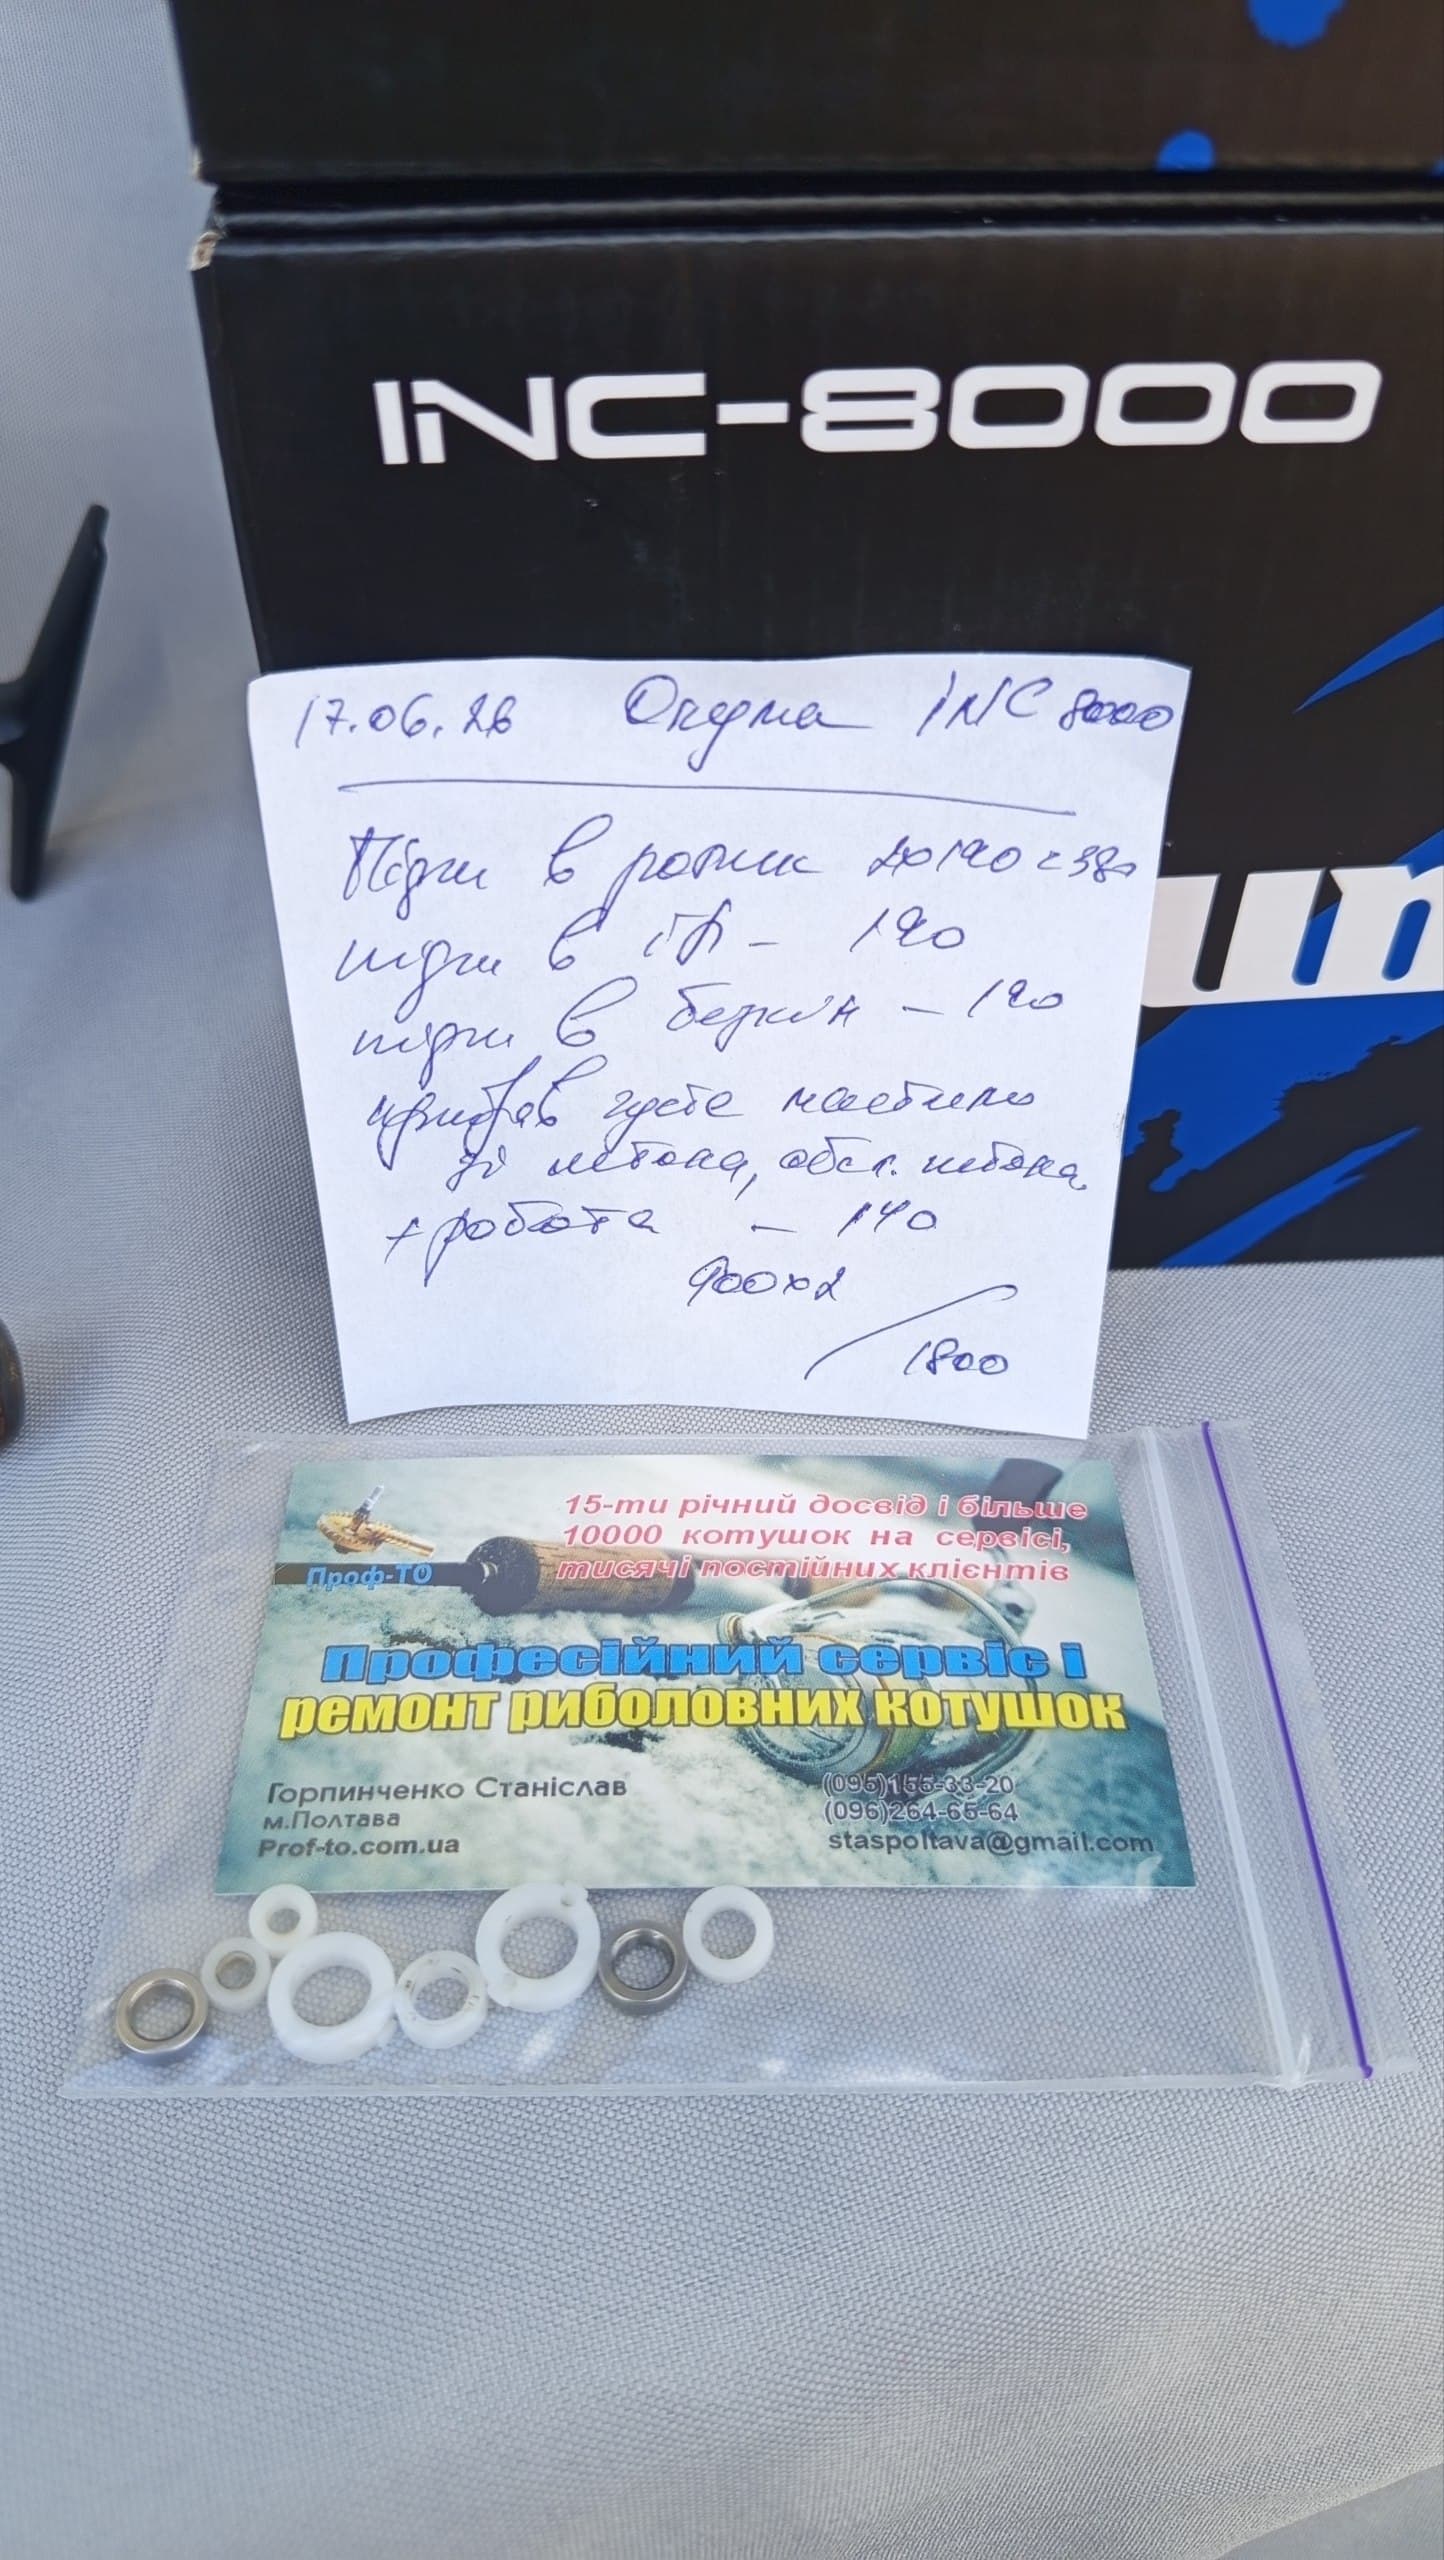 INC-8000
um
17.06.26 Окума INC 8000
Підш в ролик 2х190=380
підш в ГП - 190
підш в безкін - 190
прибрав густе мастило
зі штока, обсл. штока
+ робота - 140
900х2
1800
15-ти річний досвід і більше
10000 котушок на сервісі,
тисячі постійних клієнтів
Проф-ТО
Професійний сервіс і
ремонт риболовних котушок
Горпинченко Станіслав
м.Полтава
Prof-to.com.ua
(095)155-33-20
(096)264-65-64
staspoltava@gmail.com